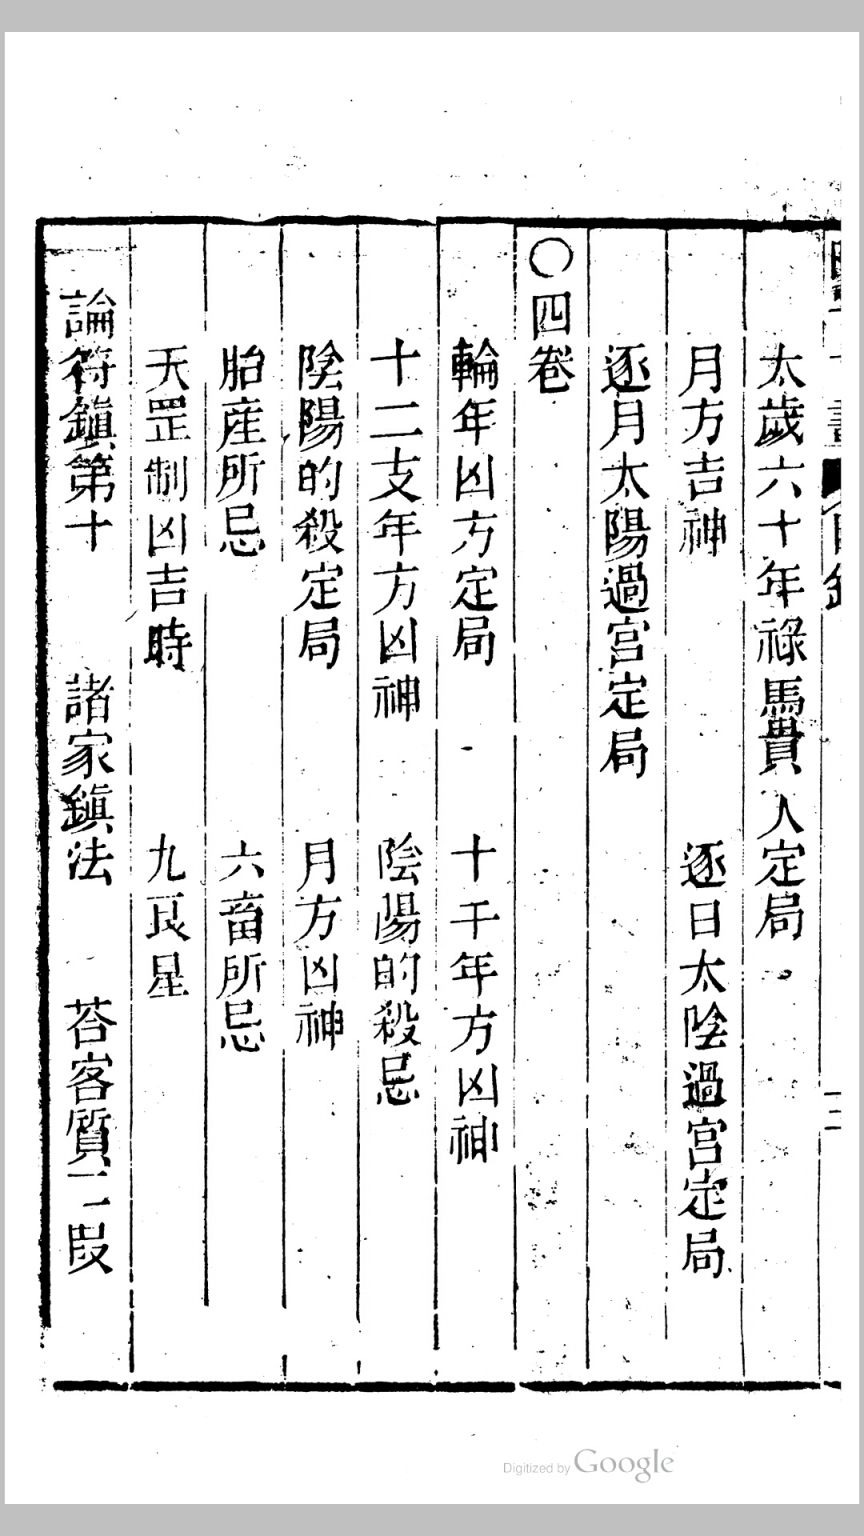 太歲六十年祿馬貴人定局
月方吉神 逐日太陰過宮定局
逐月太陽過宮定局
○四卷
輪年凶方定局 十干年方凶神
十二支年方凶神 陰陽的殺忌
陰陽的殺定局 月方凶神
胎產所忌 六畜所忌
天罡制凶吉時 九良星
論符鎮第十 諸家鎮法 荅客質二段
Digitized by Google